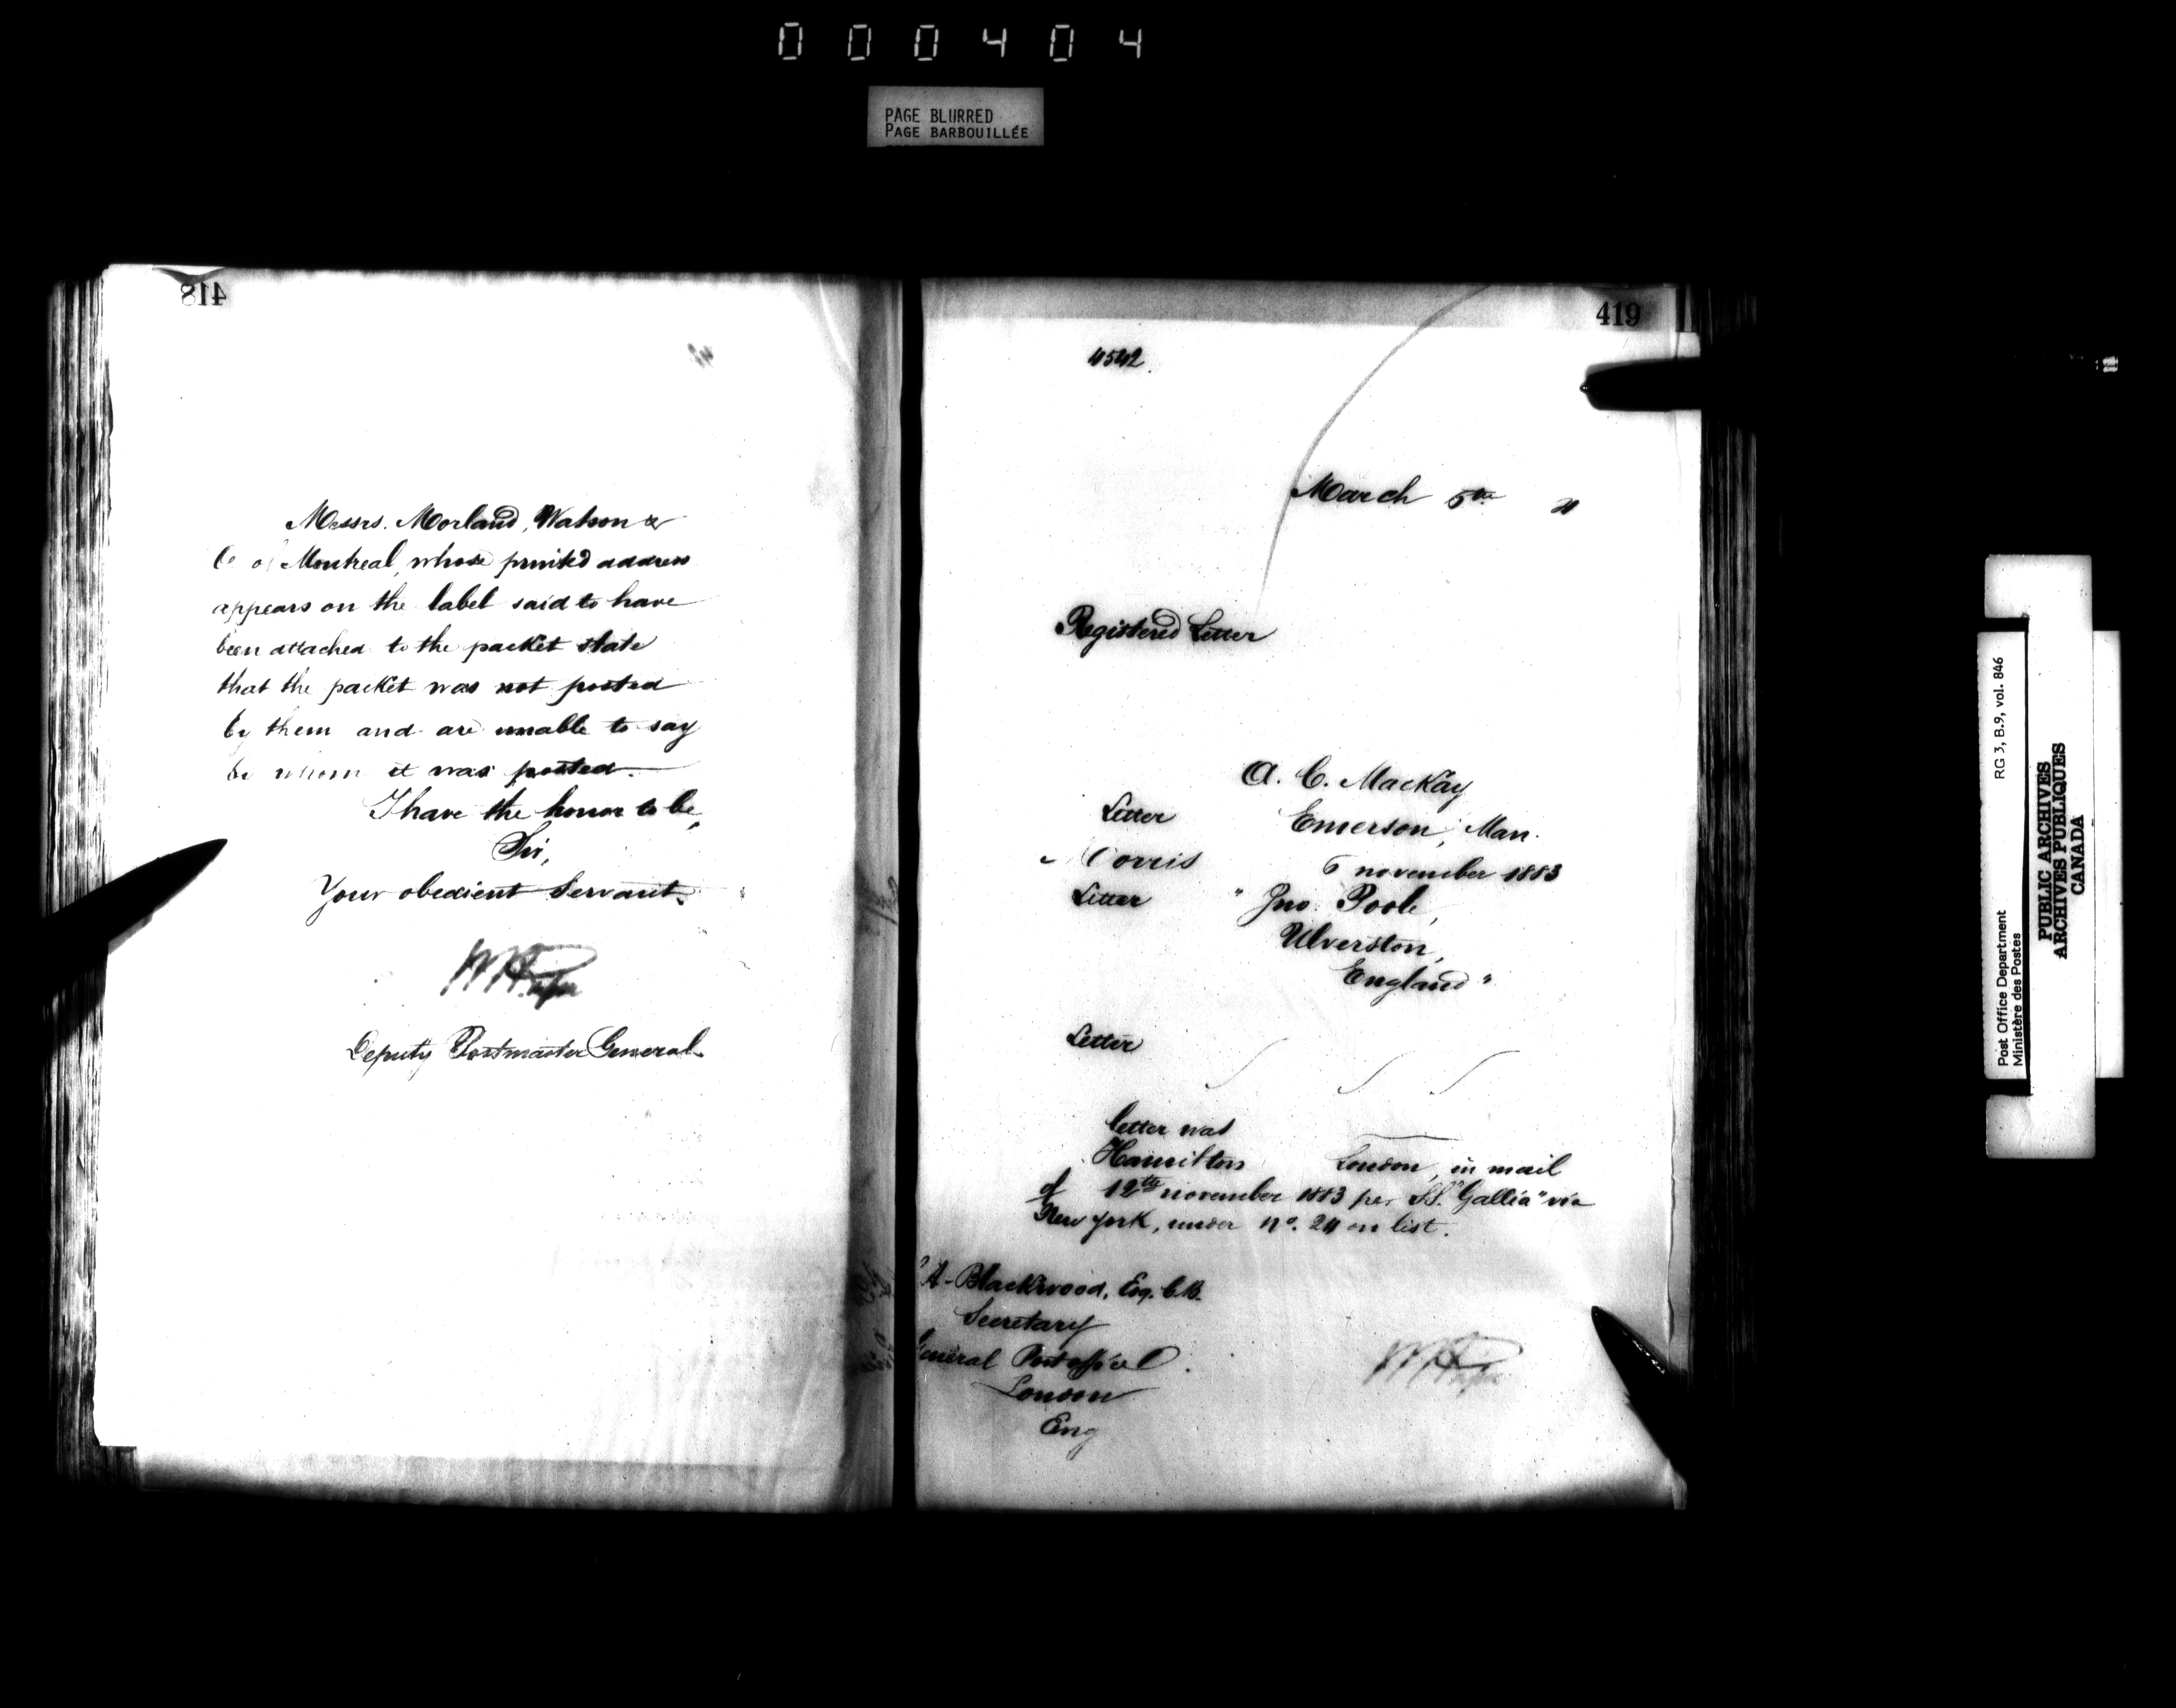 000404
PAGE BLURRED
PAGE BARBOUILLÉE
418
Messrs. Morland, Watson &
Co of Montreal, whose printed address
appears on the label said to have
been attached to the packet state
that the packet was not posted
by them and are unable to say
by whom it was posted.
I have the honor to be,
Sir,
Your obedient Servant.
Deputy Postmaster General.
419
4542.
March 5th
Registered Letter
A. C. MacKay
Letter Emerson, Man.
Morris 6 november 1883
Letter " Jno. Poole,
Ulverston,
England "
Letter
letter was
Hamilton London, in mail
of 12th november 1883 per S.S. "Gallia" via
New York, under no. 24 on list.
A. Blackwood, Esq. C.B.
Secretary
General Post office
London
Eng
RG 3, B.9, vol. 846
Post Office Department
Ministère des Postes
PUBLIC ARCHIVES
ARCHIVES PUBLIQUES
CANADA